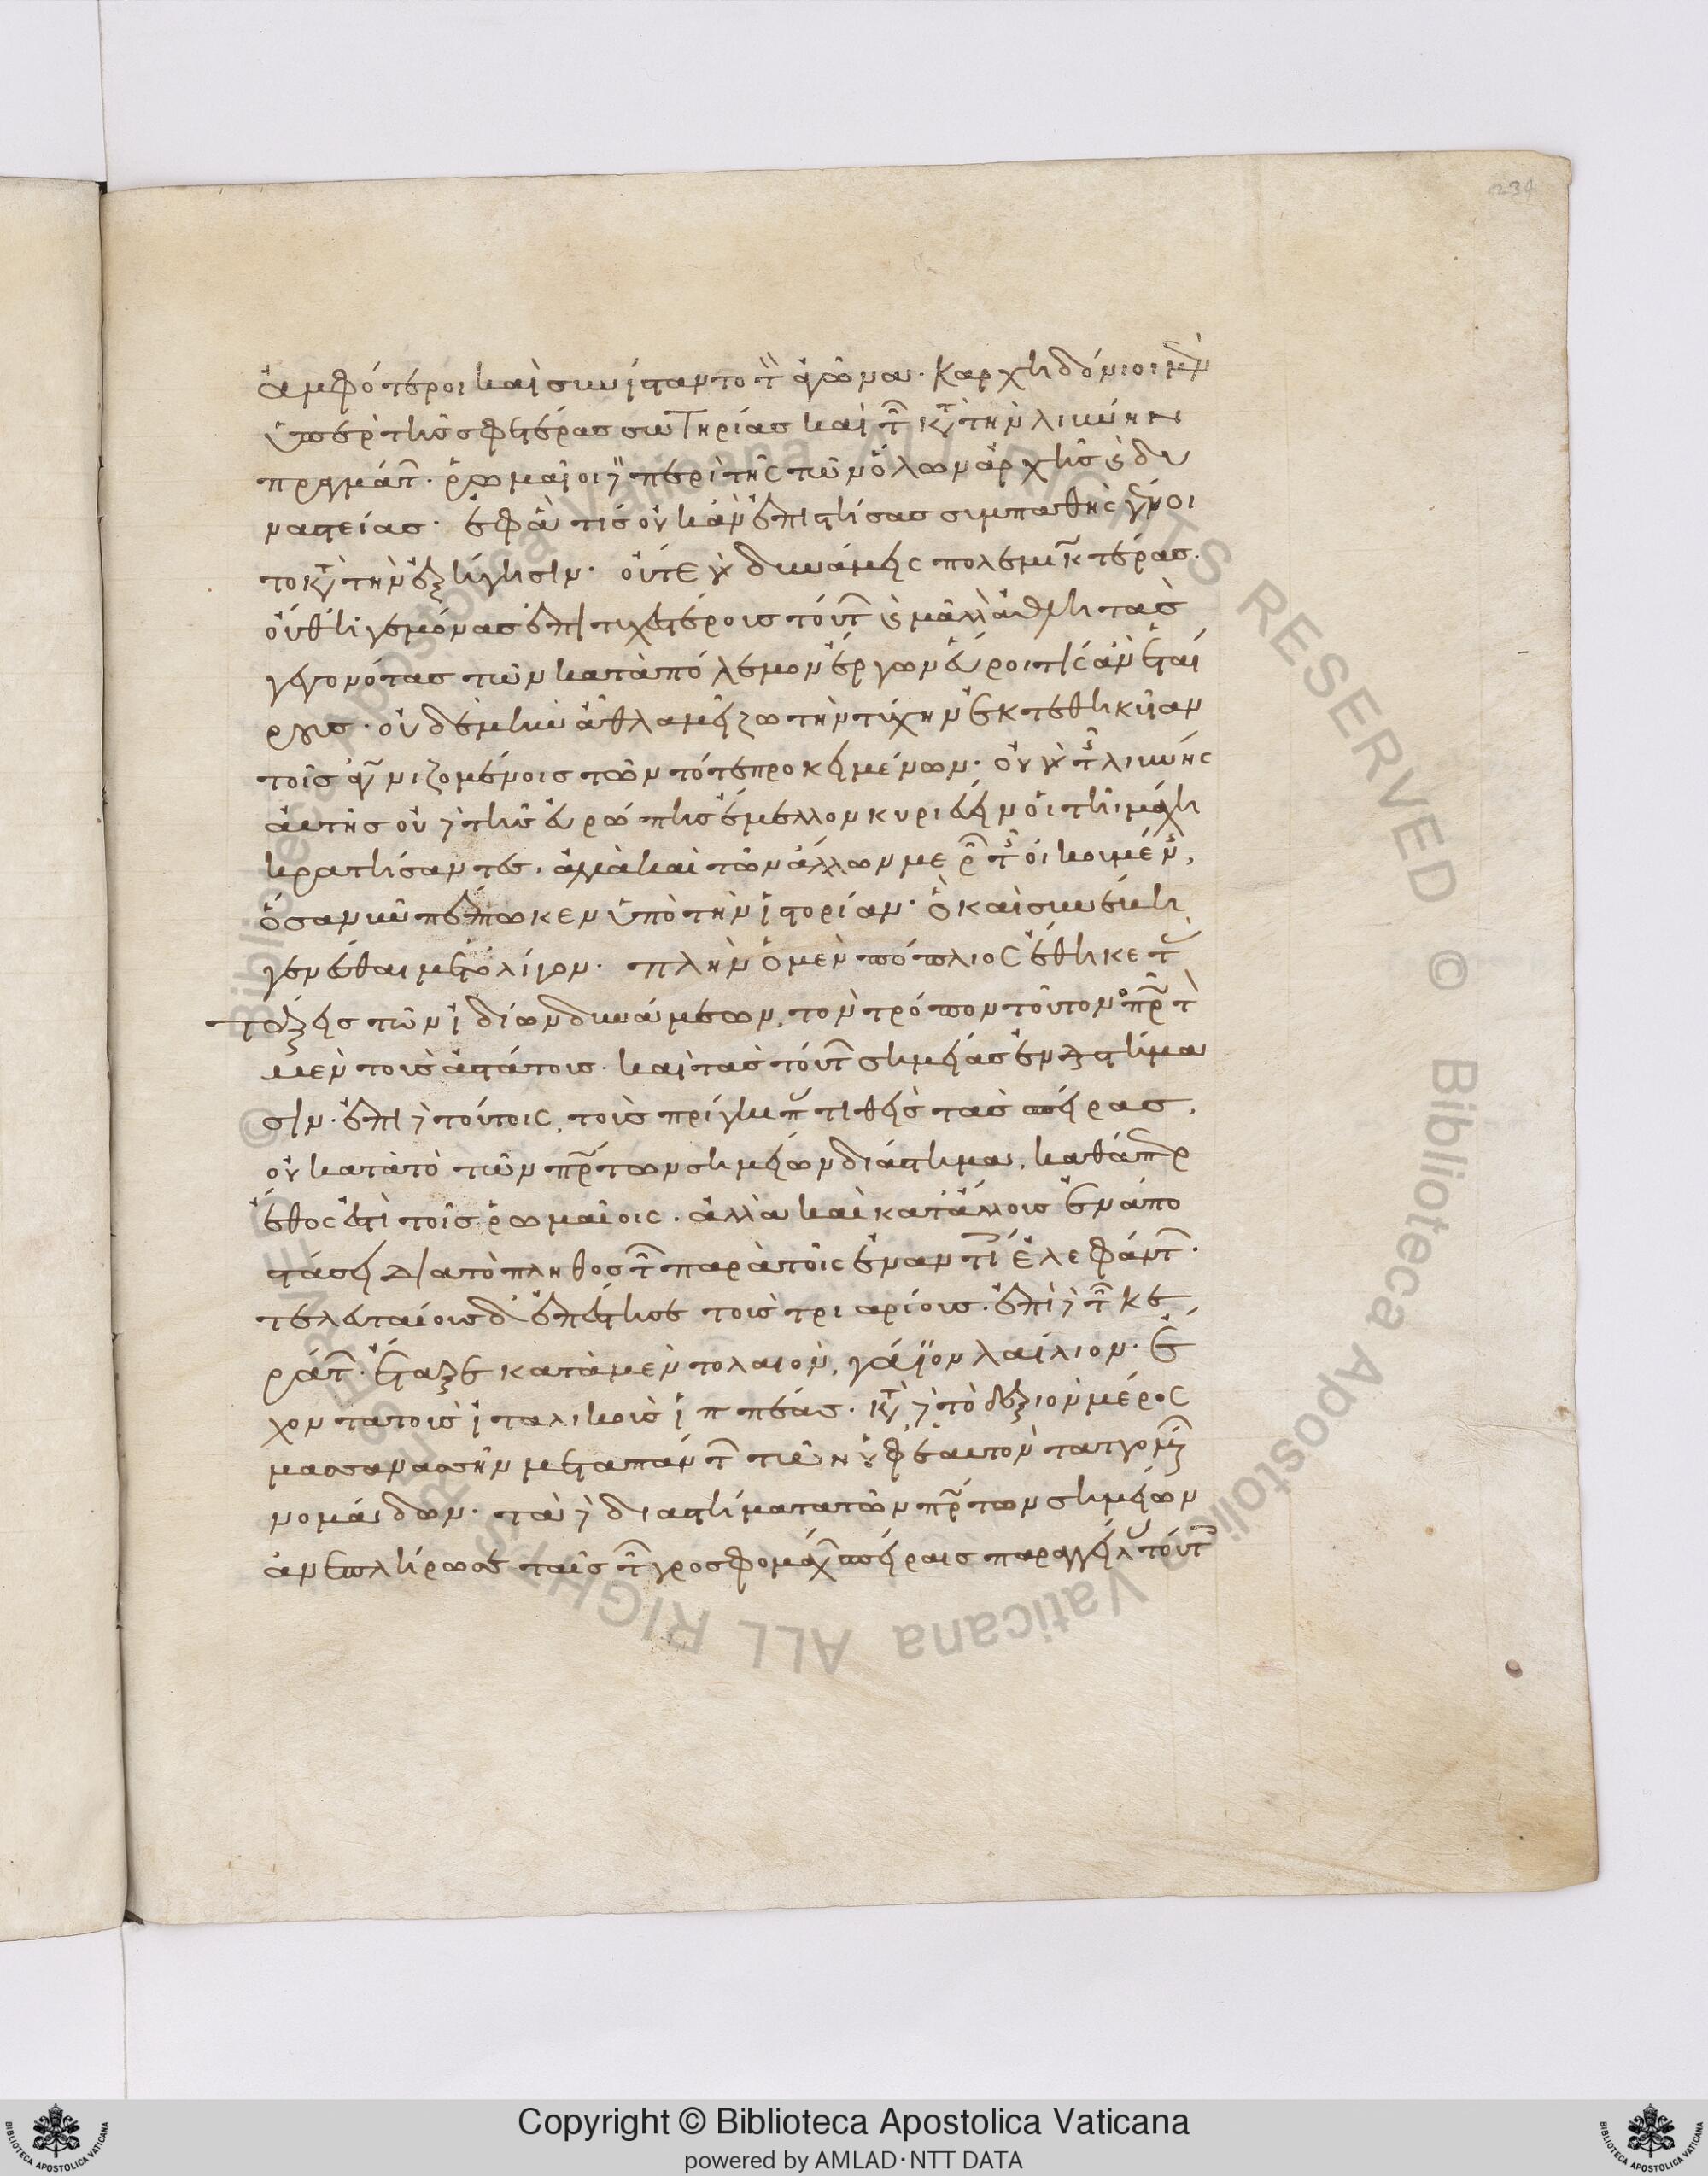 ἀμφότεροι καὶ συνίσταντο τὸν ἀγῶνα· Καρχηδόνιοι μὲν
ὑπὲρ τῆς σφετέρας σωτηρίας καὶ τῶν κατὰ τὴν λιβύην
πραγμάτων· ῥωμαῖοι δὲ περὶ τῆς τῶν ὅλων ἀρχῆς καὶ δυ
ναστείας· ἐφ' ἃ τίς οὐκ ἂν ἐπιστήσας συμπαθὴς γένοι
το κατὰ τὴν ἐξήγησιν· οὔτε γὰρ δυνάμεις πολεμικωτέρας·
οὔθ' ἡγεμόνας ἐπιτυχεστέρους τούτων καὶ μᾶλλον ἀθλητὰς
γεγονότας τῶν κατὰ πόλεμον ἔργων εὕροι τίς ἂν ἑταί
ρους· οὐδὲ μὴν ἆθλα μείζω τὴν τύχην ἐκτεθηκυῖαν
τοῖς ἀγωνιζομένοις τῶν τότε προκειμένων· οὐ γὰρ τῆς λιβύης
αὐτῆς οὐδὲ τῆς εὐρώπης ἔμελλον κυριεύειν οἱ τῇ μάχῃ
κρατήσαντες· ἀλλὰ καὶ τῶν ἄλλων μερῶν τῆς οἰκουμένης,
ὅσα νῦν πέπτωκεν ὑπὸ τὴν ἱστορίαν· ὃ καὶ συνέβη
γενέσθαι μετ' ὀλίγον· πλὴν ὁ μὲν πόπλιος ἔθηκε τὰς
τάξεις τῶν ἰδίων δυνάμεων, τὸν τρόπον τοῦτον πρῶτον
μὲν τοὺς ἀστάτους· καὶ τὰς τούτων σημείας ἐν διαστήμα
σιν· ἐπὶ δὲ τούτοις, τοὺς πρίγκιπας τιθεὶς τὰς σπείρας,
οὐ κατὰ τὸ τῶν πρώτων σημείων διάστημα, καθάπερ
ἔθος ἐστὶ τοῖς ῥωμαίοις· ἀλλὰ καὶ κατάλλους ἐν ἀπο
στάσει διὰ τὸ πλῆθος τῶν παρὰ τοῖς ἐναντίοις ἐλεφάντων·
τελευταίους δ' ἐπέστησε τοὺς τριαρίους· ἐπὶ δὲ τῶν κε
ράτων· ἔταξε κατὰ μὲν τὸ λαιὸν, γάϊον λαίλιον· ἔ
χοντα τοὺς ἰταλικοὺς ἱππέας· κατὰ δὲ τὸ δεξιὸν μέρος
μασσανασσὴν μετὰ πάντων τῶν ὑφ' ἑαυτὸν ταττομένων
νομάδων· τὰ δὲ διαστήματα τῶν πρώτων σημείων
ἀνεπλήρωσε ταῖς τῶν γροσφομάχων σπείραις παραγγείλας τούτοις